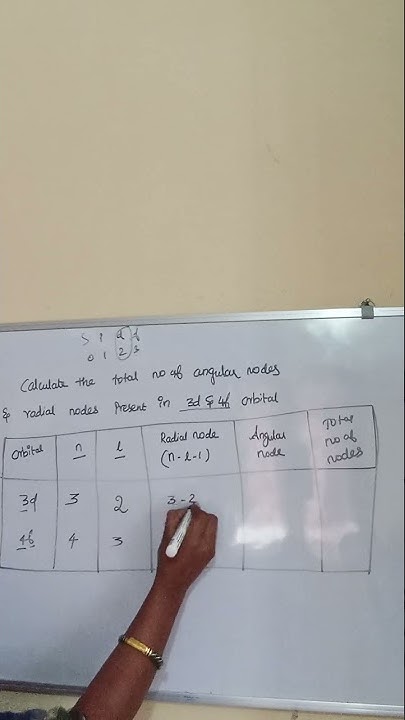 s p d f
0 1 2 3
Calculate the total no of angular nodes
& radial nodes Present in 3d & 4f orbital
Orbital n l Radial node (n-l-1) Angular node Total no of nodes
3d 3 2 3-2
4f 4 3